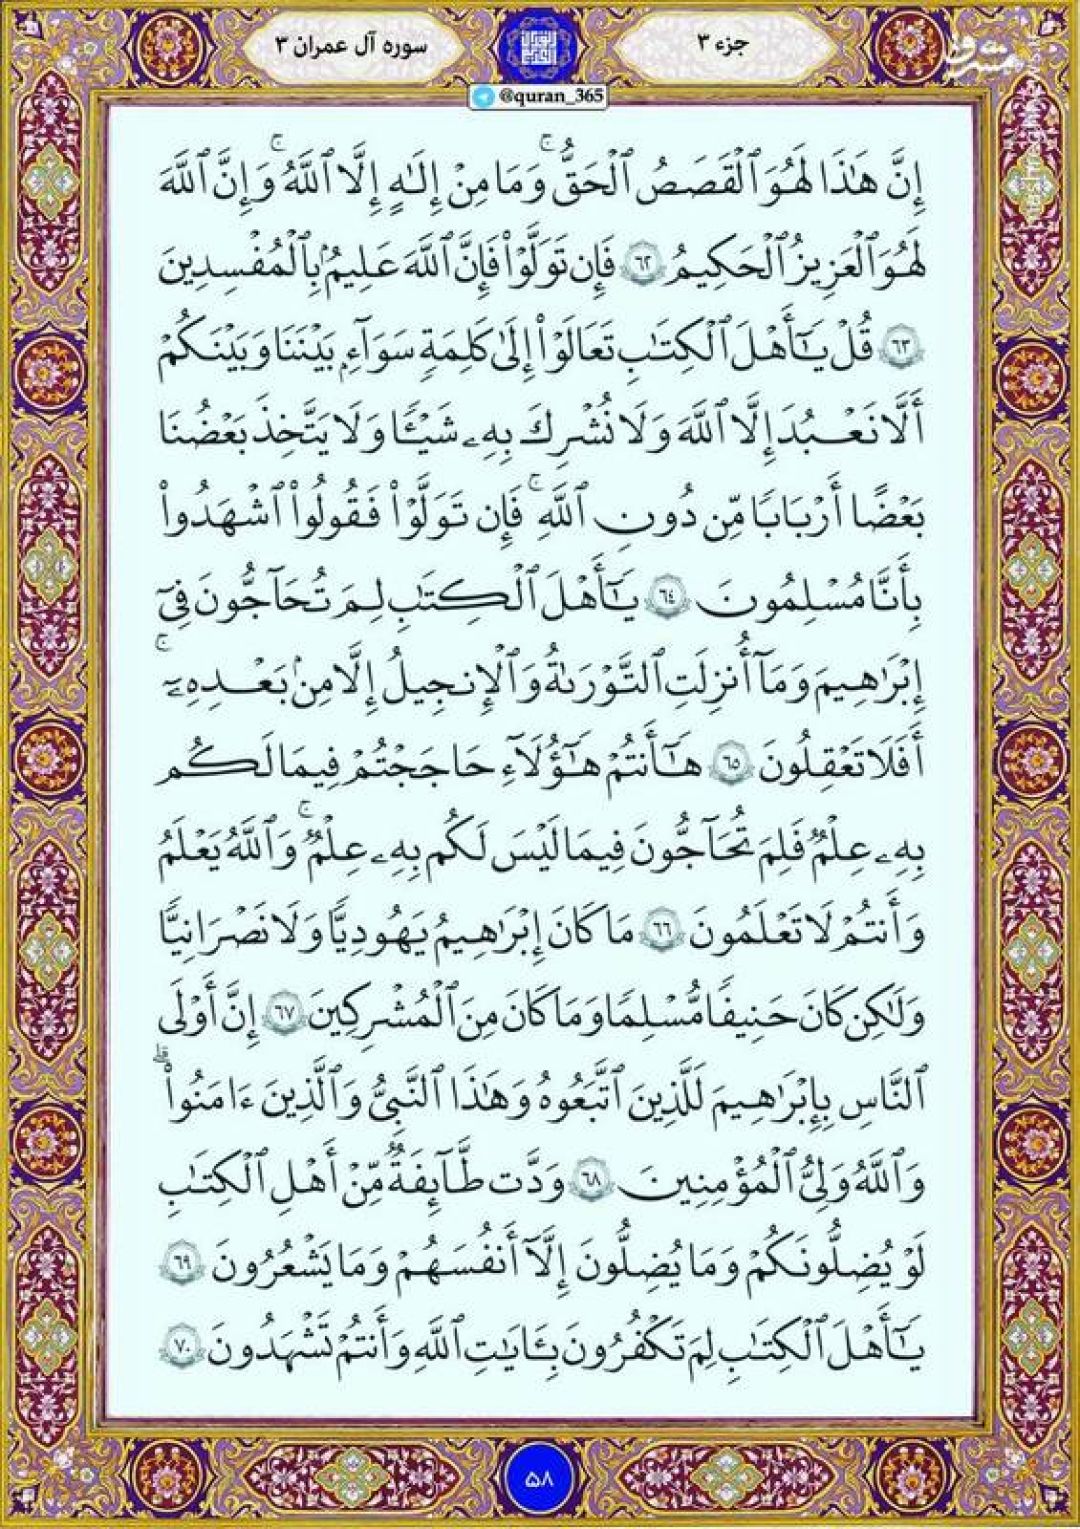 جزء ۳
سوره آل عمران ۳
@quran_365
إِنَّ هَٰذَا لَهُوَ ٱلْقَصَصُ ٱلْحَقُّ ۚ وَمَا مِنْ إِلَٰهٍ إِلَّا ٱللَّهُ ۚ وَإِنَّ ٱللَّهَ
لَهُوَ ٱلْعَزِيزُ ٱلْحَكِيمُ ٦٢ فَإِن تَوَلَّوْا۟ فَإِنَّ ٱللَّهَ عَلِيمٌۢ بِٱلْمُفْسِدِينَ
٦٣ قُلْ يَٰٓأَهْلَ ٱلْكِتَٰبِ تَعَالَوْا۟ إِلَىٰ كَلِمَةٍۢ سَوَآءٍۭ بَيْنَنَا وَبَيْنَكُمْ
أَلَّا نَعْبُدَ إِلَّا ٱللَّهَ وَلَا نُشْرِكَ بِهِۦ شَيْـًۭٔا وَلَا يَتَّخِذَ بَعْضُنَا
بَعْضًا أَرْبَابًۭا مِّن دُونِ ٱللَّهِ ۚ فَإِن تَوَلَّوْا۟ فَقُولُوا۟ ٱشْهَدُوا۟
بِأَنَّا مُسْلِمُونَ ٦٤ يَٰٓأَهْلَ ٱلْكِتَٰبِ لِمَ تُحَآجُّونَ فِىٓ
إِبْرَٰهِيمَ وَمَآ أُنزِلَتِ ٱلتَّوْرَىٰةُ وَٱلْإِنجِيلُ إِلَّا مِنۢ بَعْدِهِۦٓ ۚ
أَفَلَا تَعْقِلُونَ ٦٥ هَٰٓأَنتُمْ هَٰٓؤُلَآءِ حَٰجَجْتُمْ فِيمَا لَكُم
بِهِۦ عِلْمٌۭ فَلِمَ تُحَآجُّونَ فِيمَا لَيْسَ لَكُم بِهِۦ عِلْمٌۭ ۚ وَٱللَّهُ يَعْلَمُ
وَأَنتُمْ لَا تَعْلَمُونَ ٦٦ مَا كَانَ إِبْرَٰهِيمُ يَهُودِيًّۭا وَلَا نَصْرَانِيًّۭا
وَلَٰكِن كَانَ حَنِيفًۭا مُّسْلِمًۭا وَمَا كَانَ مِنَ ٱلْمُشْرِكِينَ ٦٧ إِنَّ أَوْلَى
ٱلنَّاسِ بِإِبْرَٰهِيمَ لَلَّذِينَ ٱتَّبَعُوهُ وَهَٰذَا ٱلنَّبِىُّ وَٱلَّذِينَ ءَامَنُوا۟ ۗ
وَٱللَّهُ وَلِىُّ ٱلْمُؤْمِنِينَ ٦٨ وَدَّت طَّآئِفَةٌۭ مِّنْ أَهْلِ ٱلْكِتَٰبِ
لَوْ يُضِلُّونَكُمْ وَمَا يُضِلُّونَ إِلَّآ أَنفُسَهُمْ وَمَا يَشْعُرُونَ ٦٩
يَٰٓأَهْلَ ٱلْكِتَٰبِ لِمَ تَكْفُرُونَ بِـَٔايَٰتِ ٱللَّهِ وَأَنتُمْ تَشْهَدُونَ ٧٠
۵۸